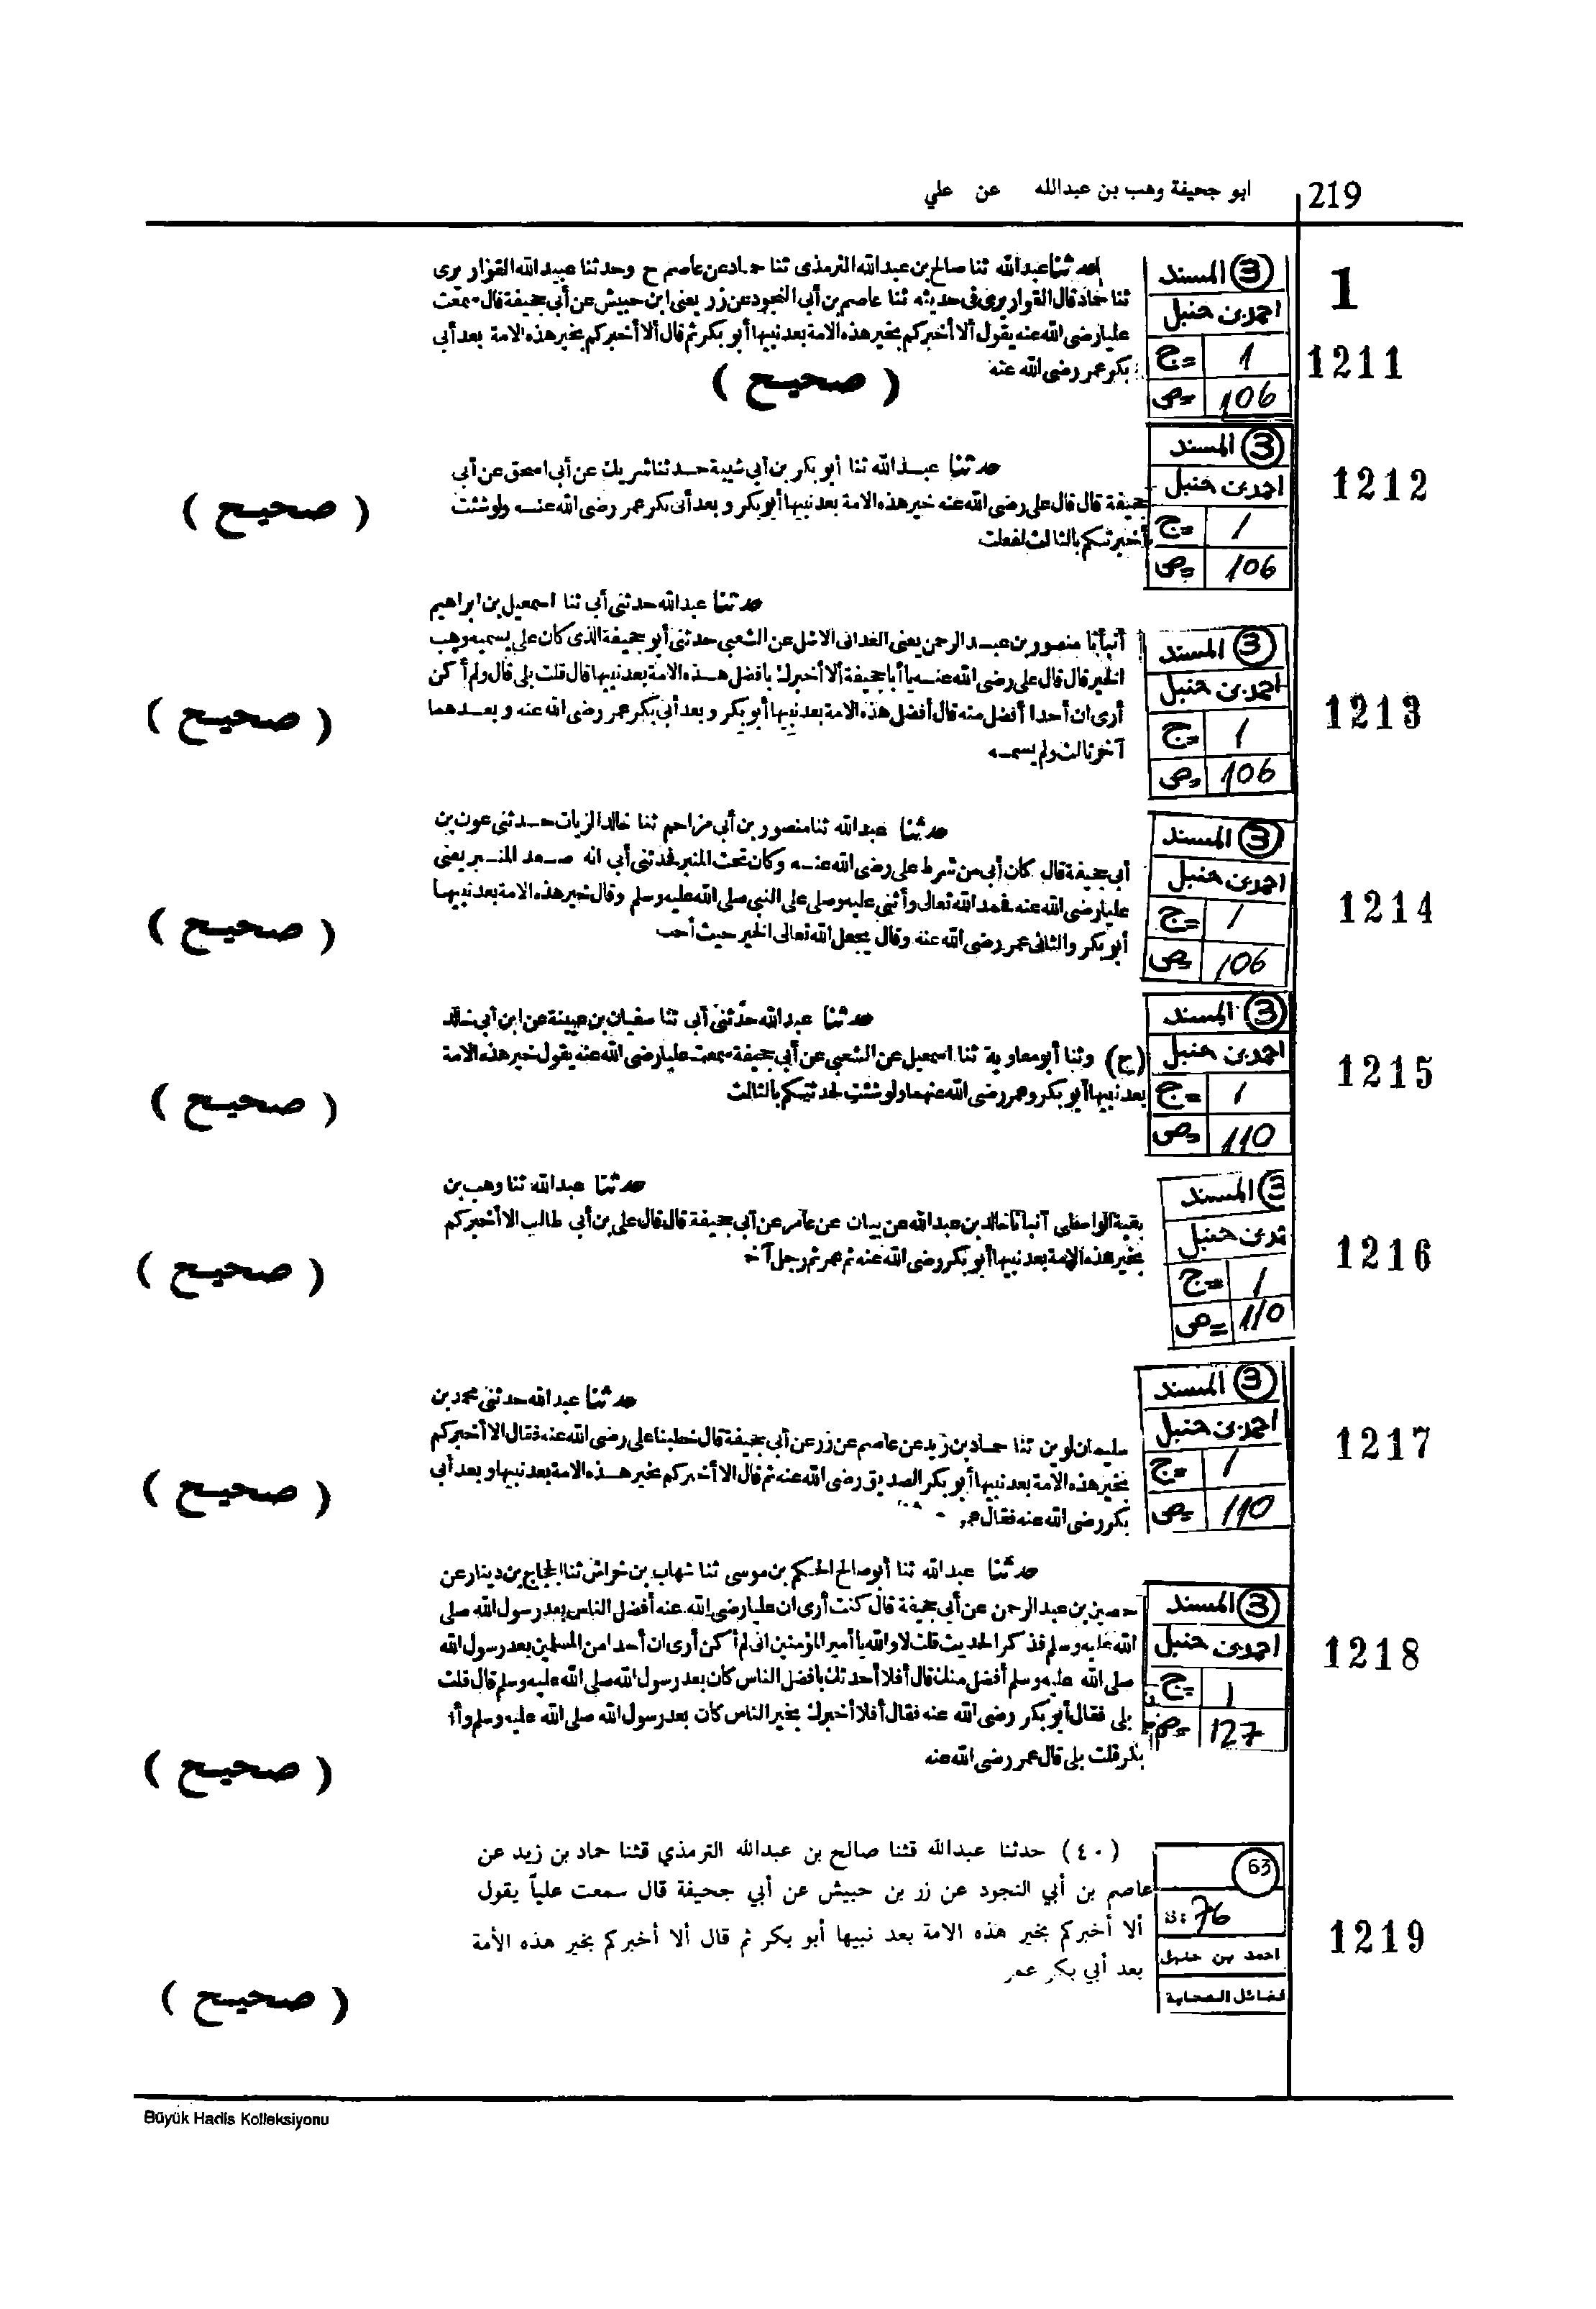 219 ابو جحيفة وهب بن عبدالله عن علي
1
1211
(3) المسند
احمد بن حنبل
ج= 1
ص= 106
حدثنا عبدالله ثنا صالح بن عبدالله الترمذى ثنا حماد عن عاصم ح وحدثنا عبيد الله القواريرى
ثنا حماد قال القواريرى فى حديثه ثنا عاصم بن أبى النجود عن زر يعنى ابن حبيش عن أبى جحيفة قال سمعت
عليا رضى الله عنه يقول ألا أخبركم بخير هذه الامة بعد نبيها أبو بكر ثم قال ألا أخبركم بخير هذه الامة بعد أبى
بكر عمر رضى الله عنه
( صحيح )
1212
(3) المسند
احمد بن حنبل
ج= 1
ص= 106
حدثنا عبد الله ثنا أبو بكر بن أبى شيبة حدثنا شريك عن أبى اسحق عن أبى
جحيفة قال قال على رضى الله عنه خير هذه الامة بعد نبيها أبو بكر و بعد أبى بكر عمر رضى الله عنه ولو شئت
أخبرتكم بالثالث لفعلت
( صحيح )
1213
(3) المسند
احمد بن حنبل
ج= 1
ص= 106
حدثنا عبدالله حدثنى أبى ثنا اسمعيل بن ابراهيم
أنبأنا منصور بن عبد الرحمن يعنى الغدانى الاشل عن الشعبى حدثنى أبو جحيفة الذى كان على يسميه وهب
الخير قال قال على رضى الله عنه يا أبا جحيفة ألا أخبرك بافضل هذه الامة بعد نبيها قال قلت بلى قال ولم أكن
أرى ان أحدا أفضل منه قال أفضل هذه الامة بعد نبيها أبو بكر و بعد أبى بكر عمر رضى الله عنه و بعدهما
آخر ثالث ولم يسمه
( صحيح )
1214
(3) المسند
احمد بن حنبل
ج= 1
ص= 106
حدثنا عبدالله ثنا منصور بن أبى مزاحم ثنا خالد الزيات حدثنى عون بن
أبى جحيفة قال كان أبى من شرط على رضى الله عنه وكان تحت المنبر فحدثنى أبى انه صعد المنبر يعنى
عليا رضى الله عنه فحمد الله تعالى وأثنى عليه وصلى على النبى صلى الله عليه وسلم وقال خير هذه الامة بعد نبيها
أبو بكر والثانى عمر رضى الله عنه وقال يجعل الله تعالى الخير حيث أحب
( صحيح )
1215
(3) المسند
احمد بن حنبل
ج= 1
ص= 110
حدثنا عبدالله حدثنى أبى ثنا سفيان بن عيينة عن ابن أبى خالد
(ح) وثنا أبو معاوية ثنا اسمعيل عن الشعبى عن أبى جحيفة سمعت عليا رضى الله عنه يقول خير هذه الامة
بعد نبيها أبو بكر وعمر رضى الله عنهما ولو شئت لحدثتكم بالثالث
( صحيح )
1216
(3) المسند
حنبل
ج= 1
ص= 110
حدثنا عبدالله ثنا وهب بن
بقية الواسطى أنبأنا خالد بن عبدالله عن بيان عن عامر عن أبى جحيفة قال قال على بن أبى طالب الا أخبركم
بخير هذه الامة بعد نبيها أبو بكر رضى الله عنه ثم عمر ثم رجل آخر
( صحيح )
1217
(3) المسند
احمد بن حنبل
ج= 1
ص= 110
حدثنا عبدالله حدثنى محمد بن
سليمان لوين ثنا حماد بن زيد عن عاصم عن زر عن أبى جحيفة قال خطبنا على رضى الله عنه فقال الا أخبركم
بخير هذه الامة بعد نبيها أبو بكر الصديق رضى الله عنه ثم قال الا أخبركم بخير هذه الامة بعد نبيها و بعد أبى
بكر رضى الله عنه فقال عمر
( صحيح )
1218
(3) المسند
احمد بن حنبل
ج= 1
ص= 127
حدثنا عبدالله ثنا أبو صالح الحكم بن موسى ثنا شهاب بن خراش ثنا الحجاج بن دينار عن
حصين بن عبد الرحمن عن أبى جحيفة قال كنت أرى ان عليا رضى الله عنه أفضل الناس بعد رسول الله صلى
الله عليه وسلم فذكر الحديث قلت لا والله يا أمير المؤمنين انى لم أكن أرى ان أحدا من المسلمين بعد رسول الله
صلى الله عليه وسلم أفضل منك قال أفلا أحدثك بافضل الناس كان بعد رسول الله صلى الله عليه وسلم قال قلت
بلى فقال أبو بكر رضى الله عنه فقال أفلا أخبرك بخير الناس كان بعد رسول الله صلى الله عليه وسلم وأبى
بكر قلت بلى قال عمر رضى الله عنه
( صحيح )
1219
63
76
احمد بن حنبل
فضائل الصحابة
(٤٠) حدثنا عبدالله قثنا صالح بن عبدالله الترمذي قثنا حماد بن زيد عن
عاصم بن أبي النجود عن زر بن حبيش عن أبي جحيفة قال سمعت علياً يقول
ألا أخبركم بخير هذه الامة بعد نبيها أبو بكر ثم قال ألا أخبركم بخير هذه الأمة
بعد أبي بكر عمر
( صحيح )
Büyük Hadis Kolleksiyonu